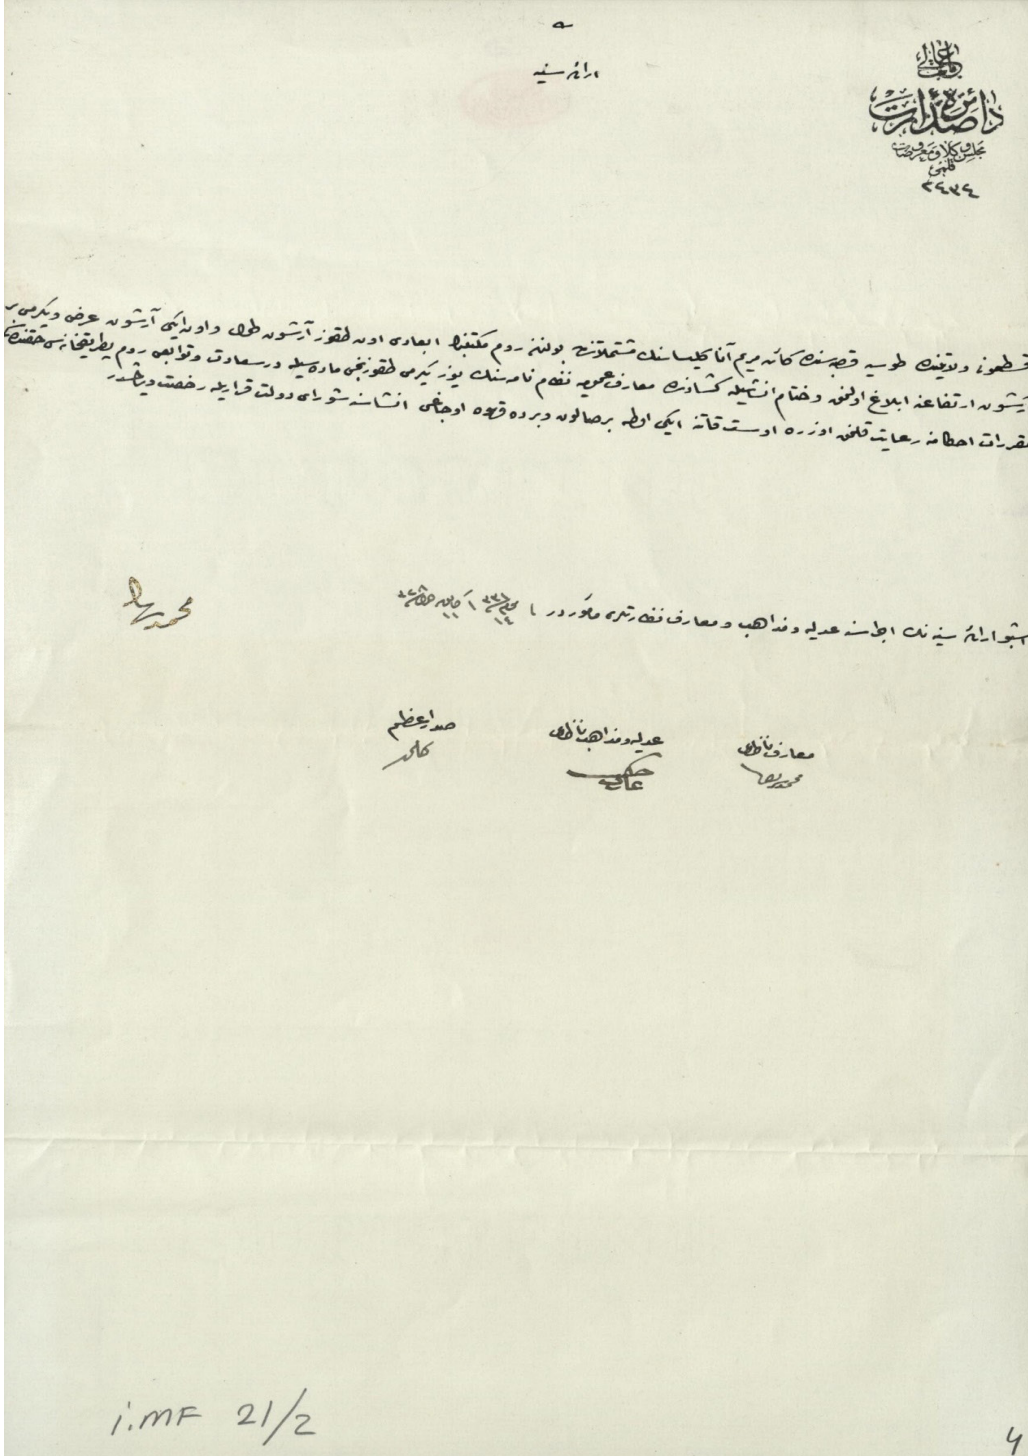 باب عالی
دائرهٔ صدارت
مجلس وكلا و معروضات
قلمی
٢٤٣٤
ارادهٔ سنیه
قسطمونی ولایتنده طوسیه قصبه‌سنده كائن مریم آنا كلیساسنك مشتملاتندن بولنان روم مكتبنك ابعادی اون طقوز آرشون طول و اون ایكی آرشون عرض و یكرمی بر
آرشون ارتفاعنه ابلاغ اولنمق و ختام انشاسیله كشادنده معارف عمومیه نظامنامه‌سنك یوز یكرمی طقوزنجی ماده‌سیله درسعادت و توابعی روم پطریقخانه‌سی حقنده‌كی
مقررات احكامنه رعایت قلنمق اوزره اوست قاتنه ایكی اوطه بر صالون و برده قهوه اوجاغی انشاسنه شورای دولت قراریله رخصت ویرلمشدر
اشبو ارادهٔ سنیه‌نك اجراسنه عدلیه و مذاهب و معارف نظارتلری مأموردر
١٤ محرم ١١ كانون
صدر اعظم
عدلیه و مذاهب ناظری
معارف ناظری
كامل
i.MF 21/2
4